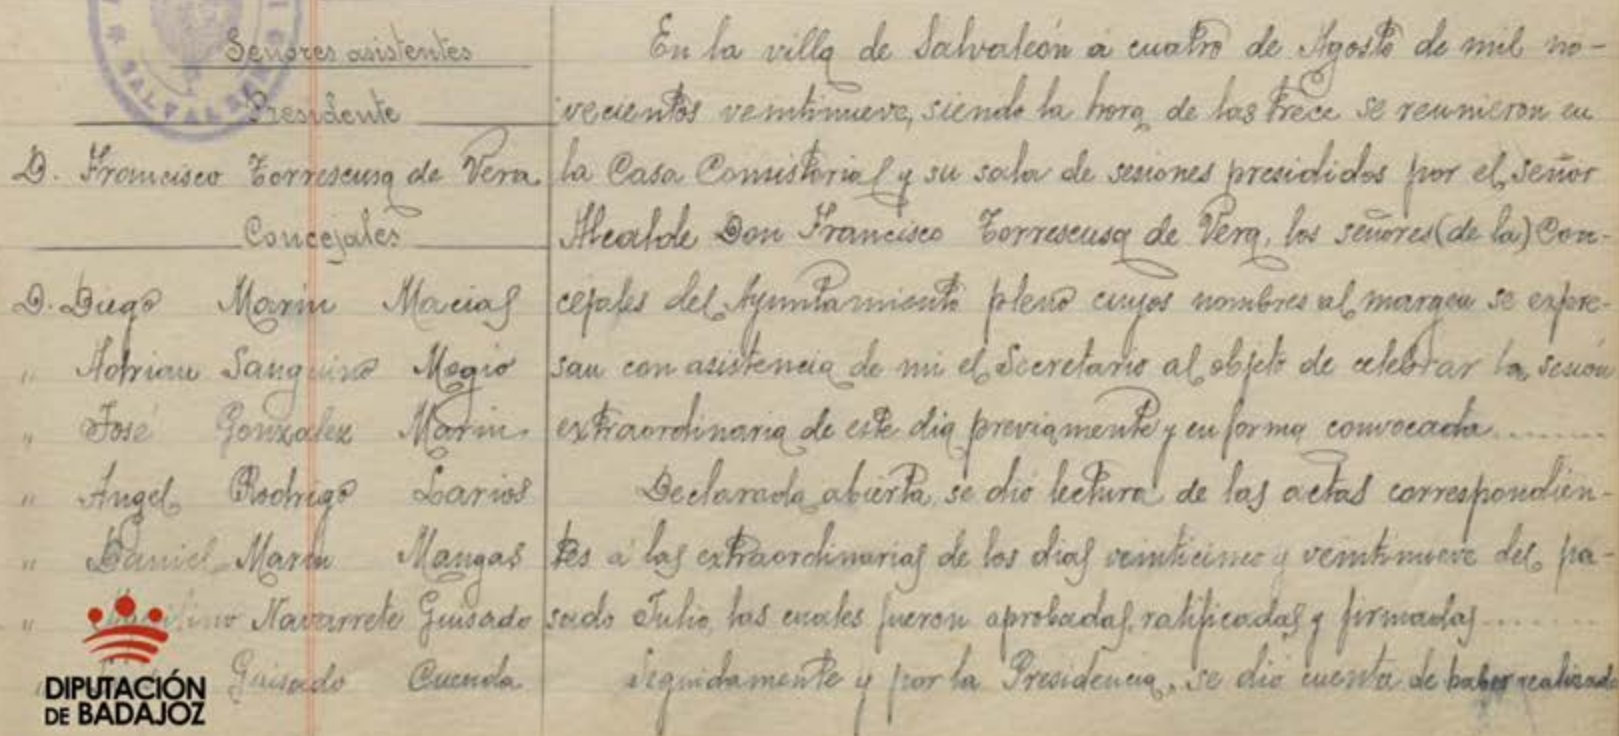 Señores asistentes
Presidente
D. Francisco Torrescusa de Vera
Concejales
D. Diego Marin Macias
" Adrian Sanguino Megio
" José Gonzalez Marin
" Angel Rodrigo Larios
" Daniel Marin Mangas
" Navarrete Guisado
Guisado Cuenda
En la villa de Salvaleón a cuatro de Agosto de mil no-
vecientos veintinueve, siendo la hora de las trece se reunieron en
la Casa Consistorial y su sala de sesiones presididos por el señor
Alcalde Don Francisco Torrescusa de Vera, los señores (de la) Con-
cejales del Ayuntamiento pleno cuyos nombres al margen se expre-
san con asistencia de mi el Secretario al objeto de celebrar la sesión
extraordinaria de este dia previamente y en forma convocada........
Declarada abierta, se dió lectura de las actas correspondien-
tes a las extraordinarias de los dias veinticinco y veintinueve del pa-
sado Julio, las cuales fueron aprobadas, ratificadas y firmadas........
Seguidamente y por la Presidencia, se dió cuenta de haber realizado
DIPUTACIÓN
DE BADAJOZ